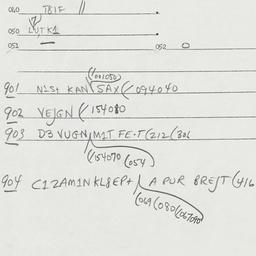 040 TBIF //
050 LUTK1
051 052 0
(001050)
901 N1St KAN SAX ( 094040
902 VEJGN ( 154080
903 D3 VUGN M1T FE·T (212 (306
(154070 (054)
904 C12AM1N KL8EP+ A PUR BREJT (416
(069 (080 (067090